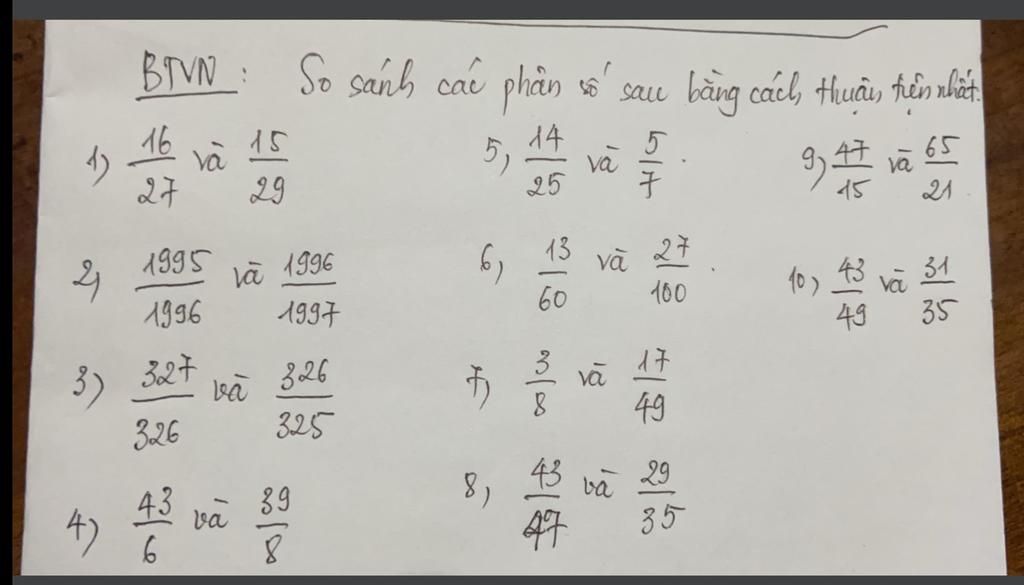 BTVN: So sánh các phân số sau bằng cách thuận tiện nhất.
1) 16/27 và 15/29
2) 1995/1996 và 1996/1997
3) 327/326 và 326/325
4) 43/6 và 39/8
5) 14/25 và 5/7.
6) 13/60 và 27/100.
7) 3/8 và 17/49
8) 43/47 và 29/35
9) 47/15 và 65/21
10) 43/49 và 31/35